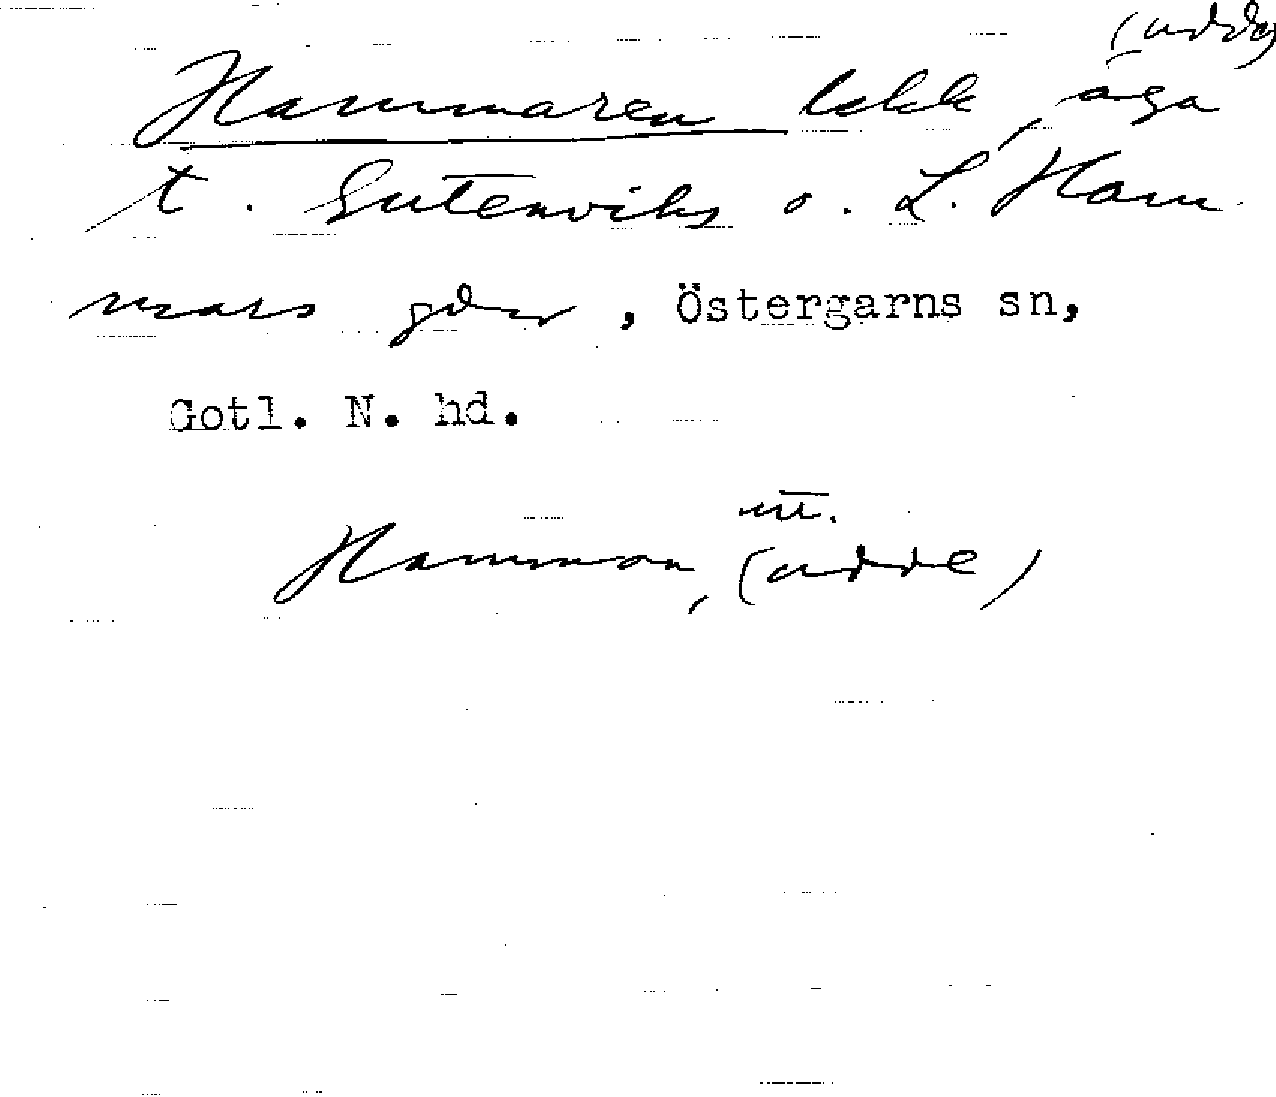 (udde)
Hammaren lokk, äga
t. Gutenviks o. L. Ham
mars gdr, Östergarns sn,
Gotl. N. hd.
utt.
Hamman, (udde)